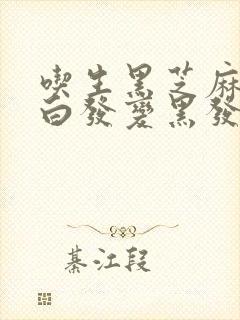 喫生黑芝麻
白發變黑發
綦江段